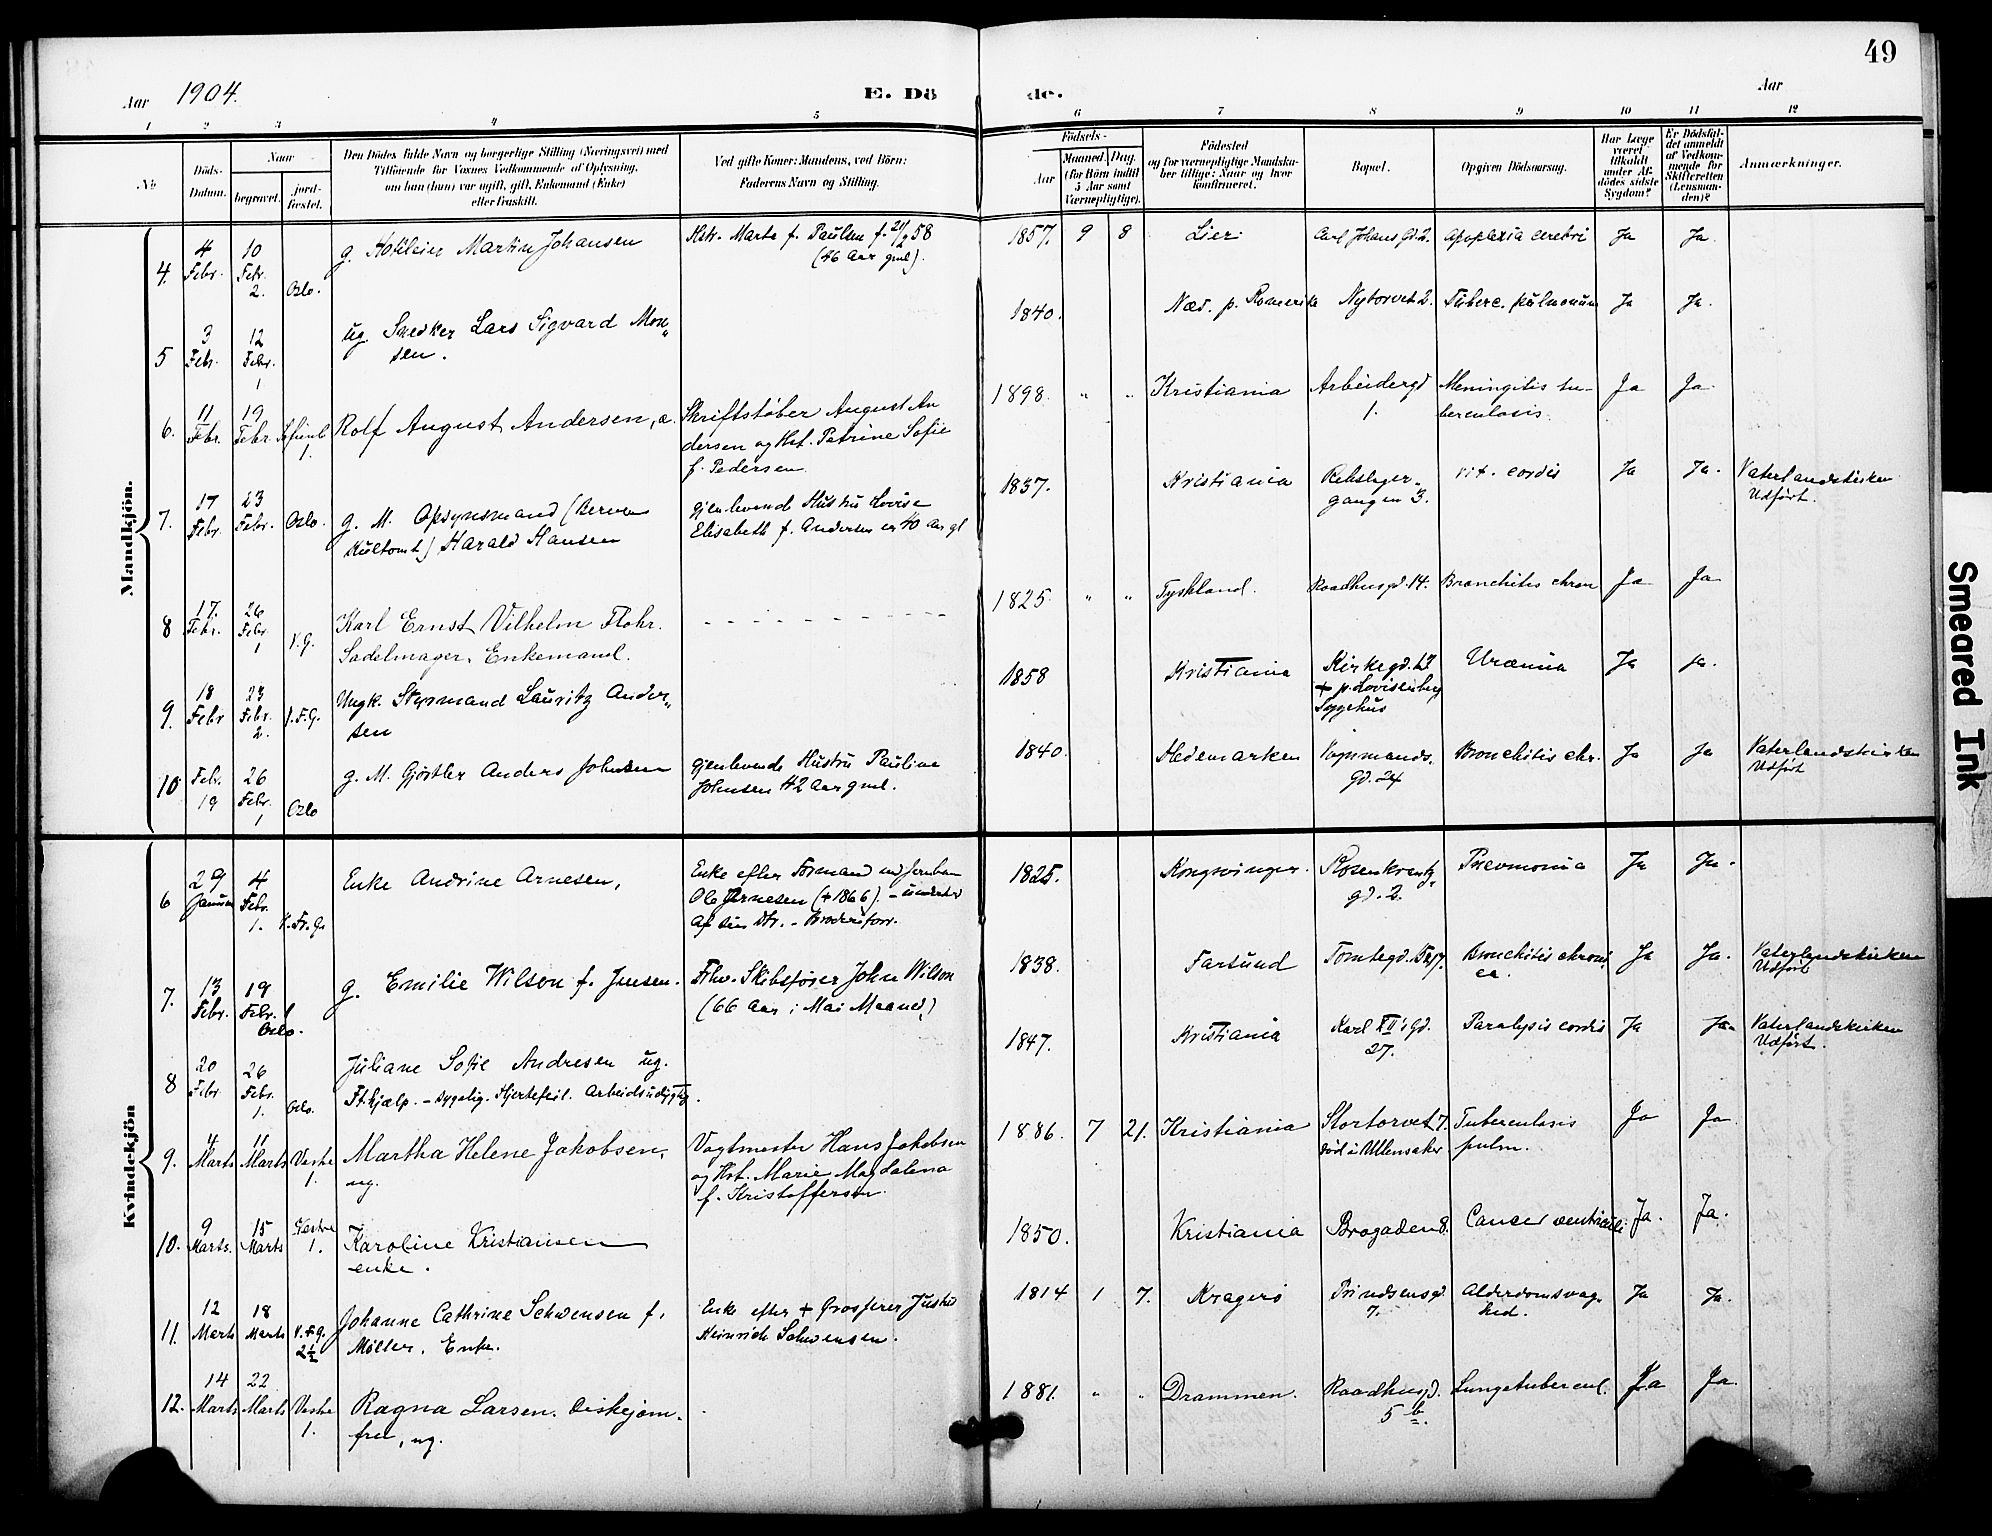 49
Aar 1904.
E. Döde.
Aar
1 2 3 4 5 6 7 8 9 10 11 12
No
Döds-Datum.
Naar
begravet.
jord-fæstet.
Den Dödes fulde Navn og borgerlige Stilling (Næringsvei) med
Tilföiende for Voxnes Vedkommende af Oplysning,
om han (hun) var ugift, gift, Enkemand (Enke)
eller fraskilt.
Ved gifte Koner: Mandens, ved Börn:
Faderens Navn og Stilling.
Födsels-
Aar
Maaned. Dag.
(for Börn indtil
5 Aar samt
Værnepligtige).
Födested
og for værnepligtige Mandskaber tillige: Naar og hvor
konfirmeret.
Bopæl.
Opgiven Dödsaarsag.
Har Læge
været
tilkaldt
under Afdödes sidste
Sygdom?
Er Dödsfaldet anmeldt
af Vedkommende for
Skifteretten
(Lensmanden)?
Anmærkninger.
Mandkjön.
4. 4 Febr. 10 Febr. 2. Oslo.
g. Martin Johansen
Hstr. Marte f. Paulsen f. 21/2 58
(46 Aar gml).
1857. 9 8 Lier Carl Johans Gd. 2. Apoplexia cerebri Ja Ja.
5 3 Febr. 12 Febr. 1
ug. Snedker Lars Sigvard Mon-
sen.
1840. Næs p. Romerike Nytorvet 2. Tuberc. pulmonum Ja Ja.
6. 11 Febr. 19 Febr. 1.
Rolf August Andersen, æ.
Skriftstøber August An
dersen og Hst. Petrine Sofie
f. Pedersen.
1898. " " Kristiania Arbeidergd 1. Meningitis tu-
berculosis. Ja Ja.
7. 17 Febr. 23 Febr. Oslo.
g. M. Opsynsmand
Harald Hansen
gjenlevende Hustru Lovise
Elisabeth f. Andersen er 40 Aar gl
1837. Kristiania Rebslager-
gangen 3. vit. cordis Ja Ja. Vaterlandskirken
Udført.
8 17. Febr. 26 Febr. 1 V.G.
Karl Ernst Vilhelm Flohr.
Sadelmager. Enkemand.
1825. " " Tyskland. Raadhusgd. 14. Bronchitis chron Ja Ja
9. 18 Febr 23 Febr. 2. V.F.G.
Ungk. Styrmand Lauritz Ander-
sen
1858 Kristiania Kirkegd. 17
+ p. Lovisenberg
Sygehus Uræmia Ja Ja.
10 Febr. 19 26 Febr. 1 Oslo
g. M. Gjørtler Anders Johnsen
gjenlevende Hustru Pauline
Johnsen 42 Aar gml.
1840. Hedemarken Vognmands-
gd. 24 Bronchitis chr. Ja Ja Vaterlandskirken
Udført
Kvindekjön
6 29 Januar 4 Febr. 1. V. Fr. G.
Enke Andrine Arnesen,
Enke efter Formand ved Jernban
Ole Arnesen (+ 1866). - understøt
af sin Dtr. - Broderiforr.
1825. Kongsvinger. Rosenkrantz-
gd. 2. Pneumonia Ja Ja.
7. 13 Febr. 19 Febr. 1 Oslo.
g. Emilie Wilson f. Jensen.
Fhv. Skibsfører John Wilson
(66 Aar i Mai Maaned)
1838. Farsund Tomtegd. Bronchitis chroni
ca. Ja Ja. Vaterlandskirken
Udført
8 20 Febr 26 Febr. 1. Oslo.
Juliane Sofie Andresen ug.
Ft.hjælp. - sygelig. Hjertefeil. Arbeidsudygtig.
1847. Kristiania Karl XII's Gd. 27. Paralysis cordis Ja Ja. Vaterlandskirken
Udført.
9. 4 Marts 11 Marts Vestre 1.
Martha Helene Jakobsen,
ug.
Vagtmester Hans Jakobsen
og Hst. Marie Magdalena
f. Kristoffersen.
1886. 7 21. Kristiania Stortorvet 7.
død i Ullensaker Tuberculosis
pulm. Ja Ja
10. 9 Marts. 15 Marts Vestre 1.
Karoline Kristiansen
enke.
1850. Kristiania Brogaden 8. Cancer ventriculi Ja. Ja.
11. 12 Marts 18 Marts V.F.G. 2½
Johanne Cathrine Schwensen f.
Møller. Enke.
Enke efter + Grosserer Justus
Heinrich Schwensen.
1814 1 7. Kragerø Prindsensgd. 7. Alderdomsvag-
hed. Ja Ja.
12. 14 Marts 22 Marts Vestre 1.
Ragna Larsen. Diskejom-
fru, ug.
1881. " " Drammen. Raadhusgd. 5 b. Lungetubercul. Ja Ja.
Smeared Ink